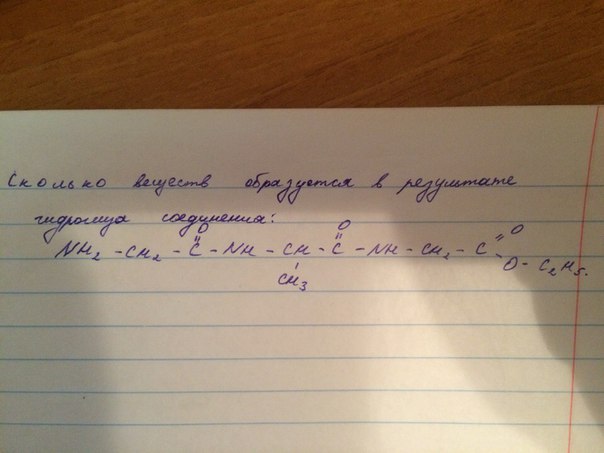 Сколько веществ образуется в результате
гидролиза соединения:
O O O
NH₂ - CH₂ - C - NH - CH - C - NH - CH₂ - C
O - C₂H₅.
CH₃